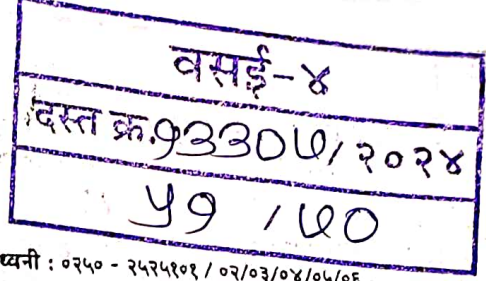 वसई-४
दस्त क्र.१३३०७/२०२४
५१ / ७०
ध्वनी : ०२५० - २५२५१०१ / ०२/०३/०४/०५/०६